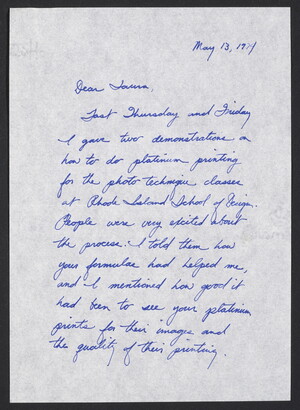 May 13, 1974
Dear Laura,
Last Thursday and Friday
I gave two demonstrations on
how to do platinum printing
for the photo technique classes
at Rhode Island School of Design.
People were very excited about
the process. I told them how
your formulae had helped me,
and I mentioned how good it
had been to see your platinum
prints for their images and
the quality of their printing.